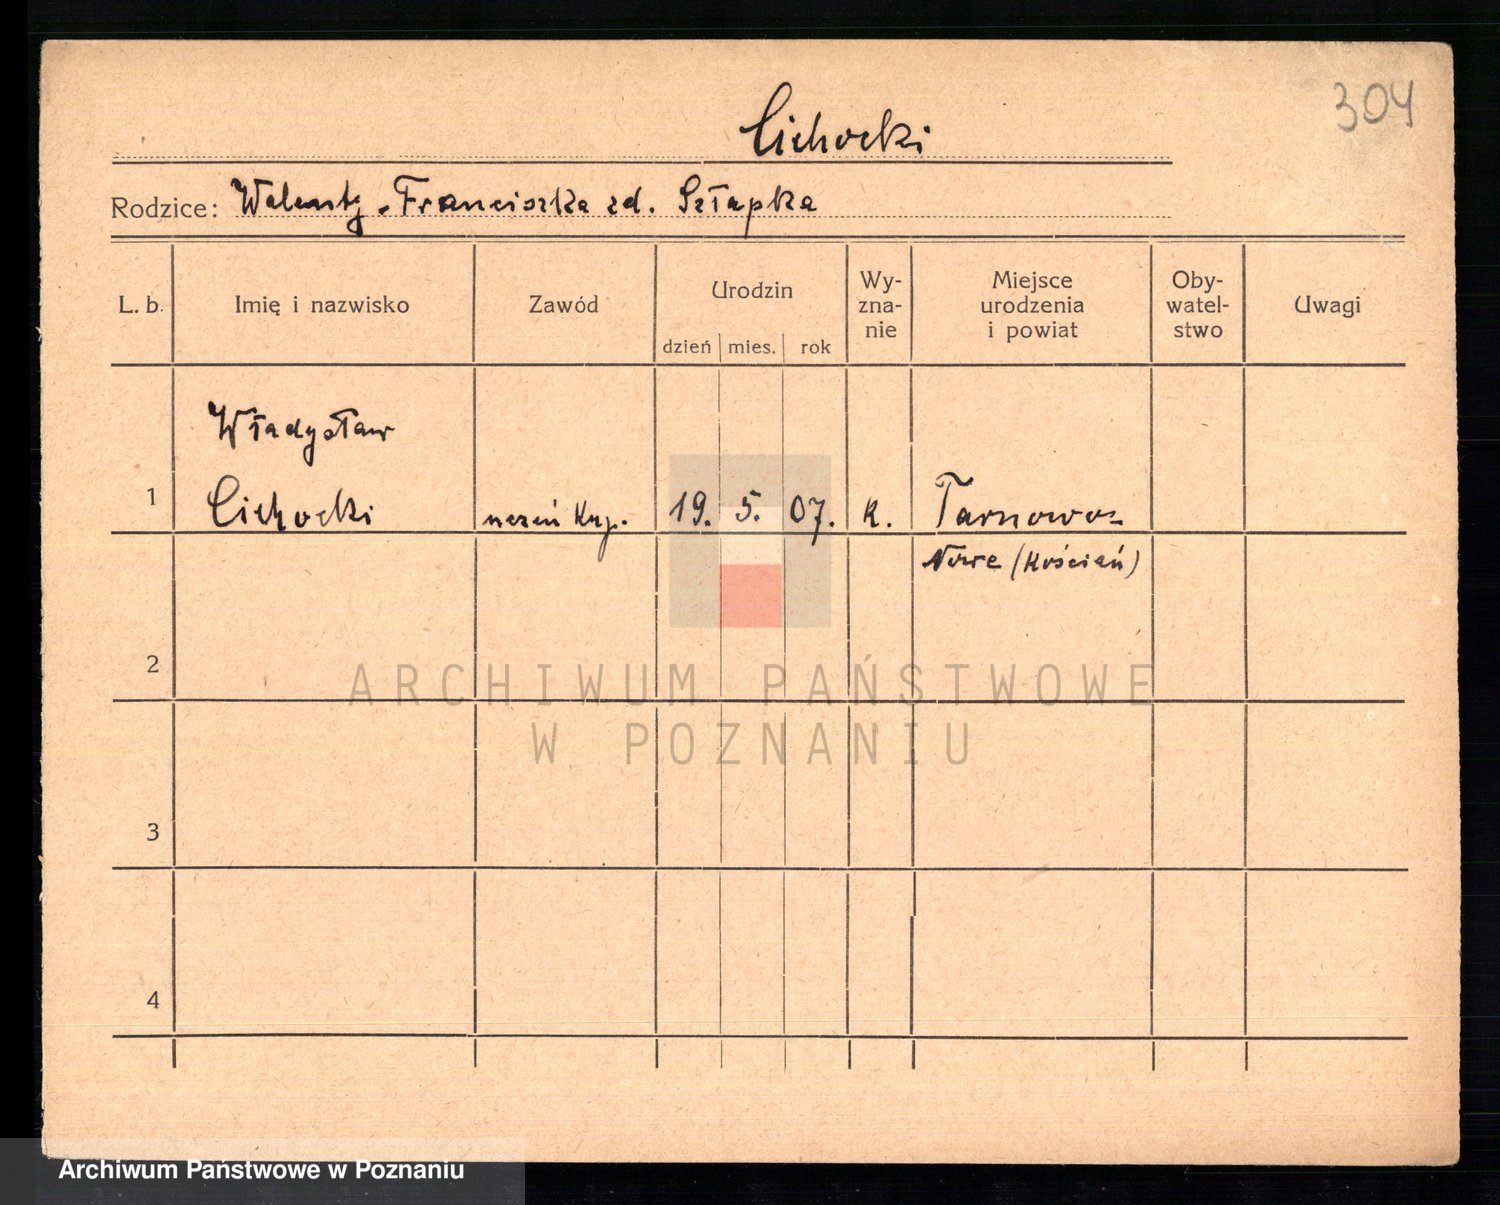 304
Cichocki
Rodzice: Walenty - Franciszka zd. Szłapka
L. b. Imię i nazwisko Zawód Urodzin dzień mies. rok Wy-zna-nie Miejsce urodzenia i powiat Oby-watel-stwo Uwagi
Władysław
1 Cichocki uczeń kup. 19. 5. 07. k. Tarnowo-
Nowe (Kościań)
2
ARCHIWUM PAŃSTWOWE
W POZNANIU
3
4
Archiwum Państwowe w Poznaniu